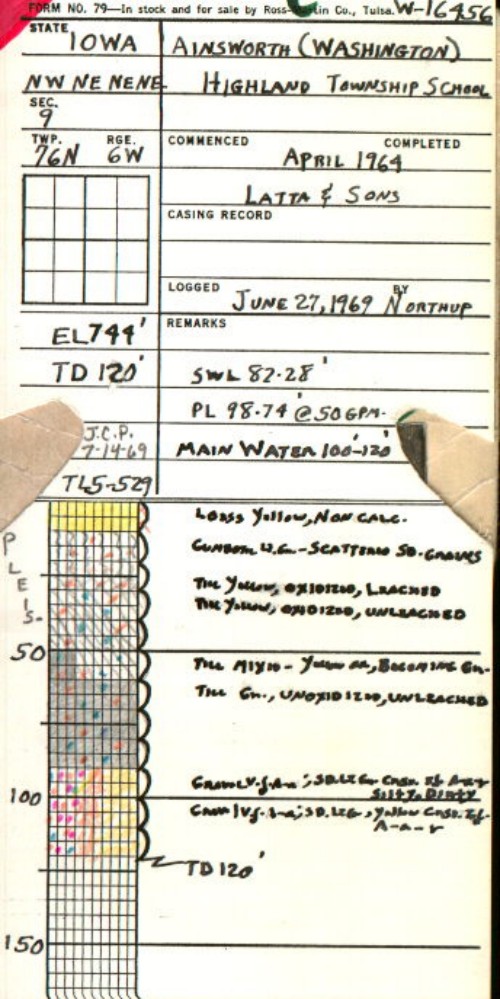 FORM NO. 79—In stock and for sale by Ross-Martin Co., Tulsa. W-16456
STATE IOWA
AINSWORTH (WASHINGTON)
NW NE NENE
HIGHLAND TOWNSHIP SCHOOL
SEC. 9
TWP. 76N RGE. 6W
COMMENCED COMPLETED
APRIL 1964
LATTA & SONS
CASING RECORD
LOGGED JUNE 27, 1969 BY NORTHUP
EL 744'
REMARKS
TD 120'
SWL 82.28'
PL 98.74' @ 50 GPM.
J.C.P.
7-14-69
MAIN WATER 100'-120'
TL5-529
LOESS YELLOW, NON CALC.
GUMBOTIL GN.-SCATTERED SD. GRAINS
TILL YELLOW, OXIDIZED, LEACHED
TILL YELLOW, OXIDIZED, UNLEACHED
PLEIS.
50
TILL MIXED - YELLOW, BECOMING GN.
TILL GN., UNOXIDIZED, UNLEACHED
SILTY, DIRTY
100
A-a-r
TD 120'
150